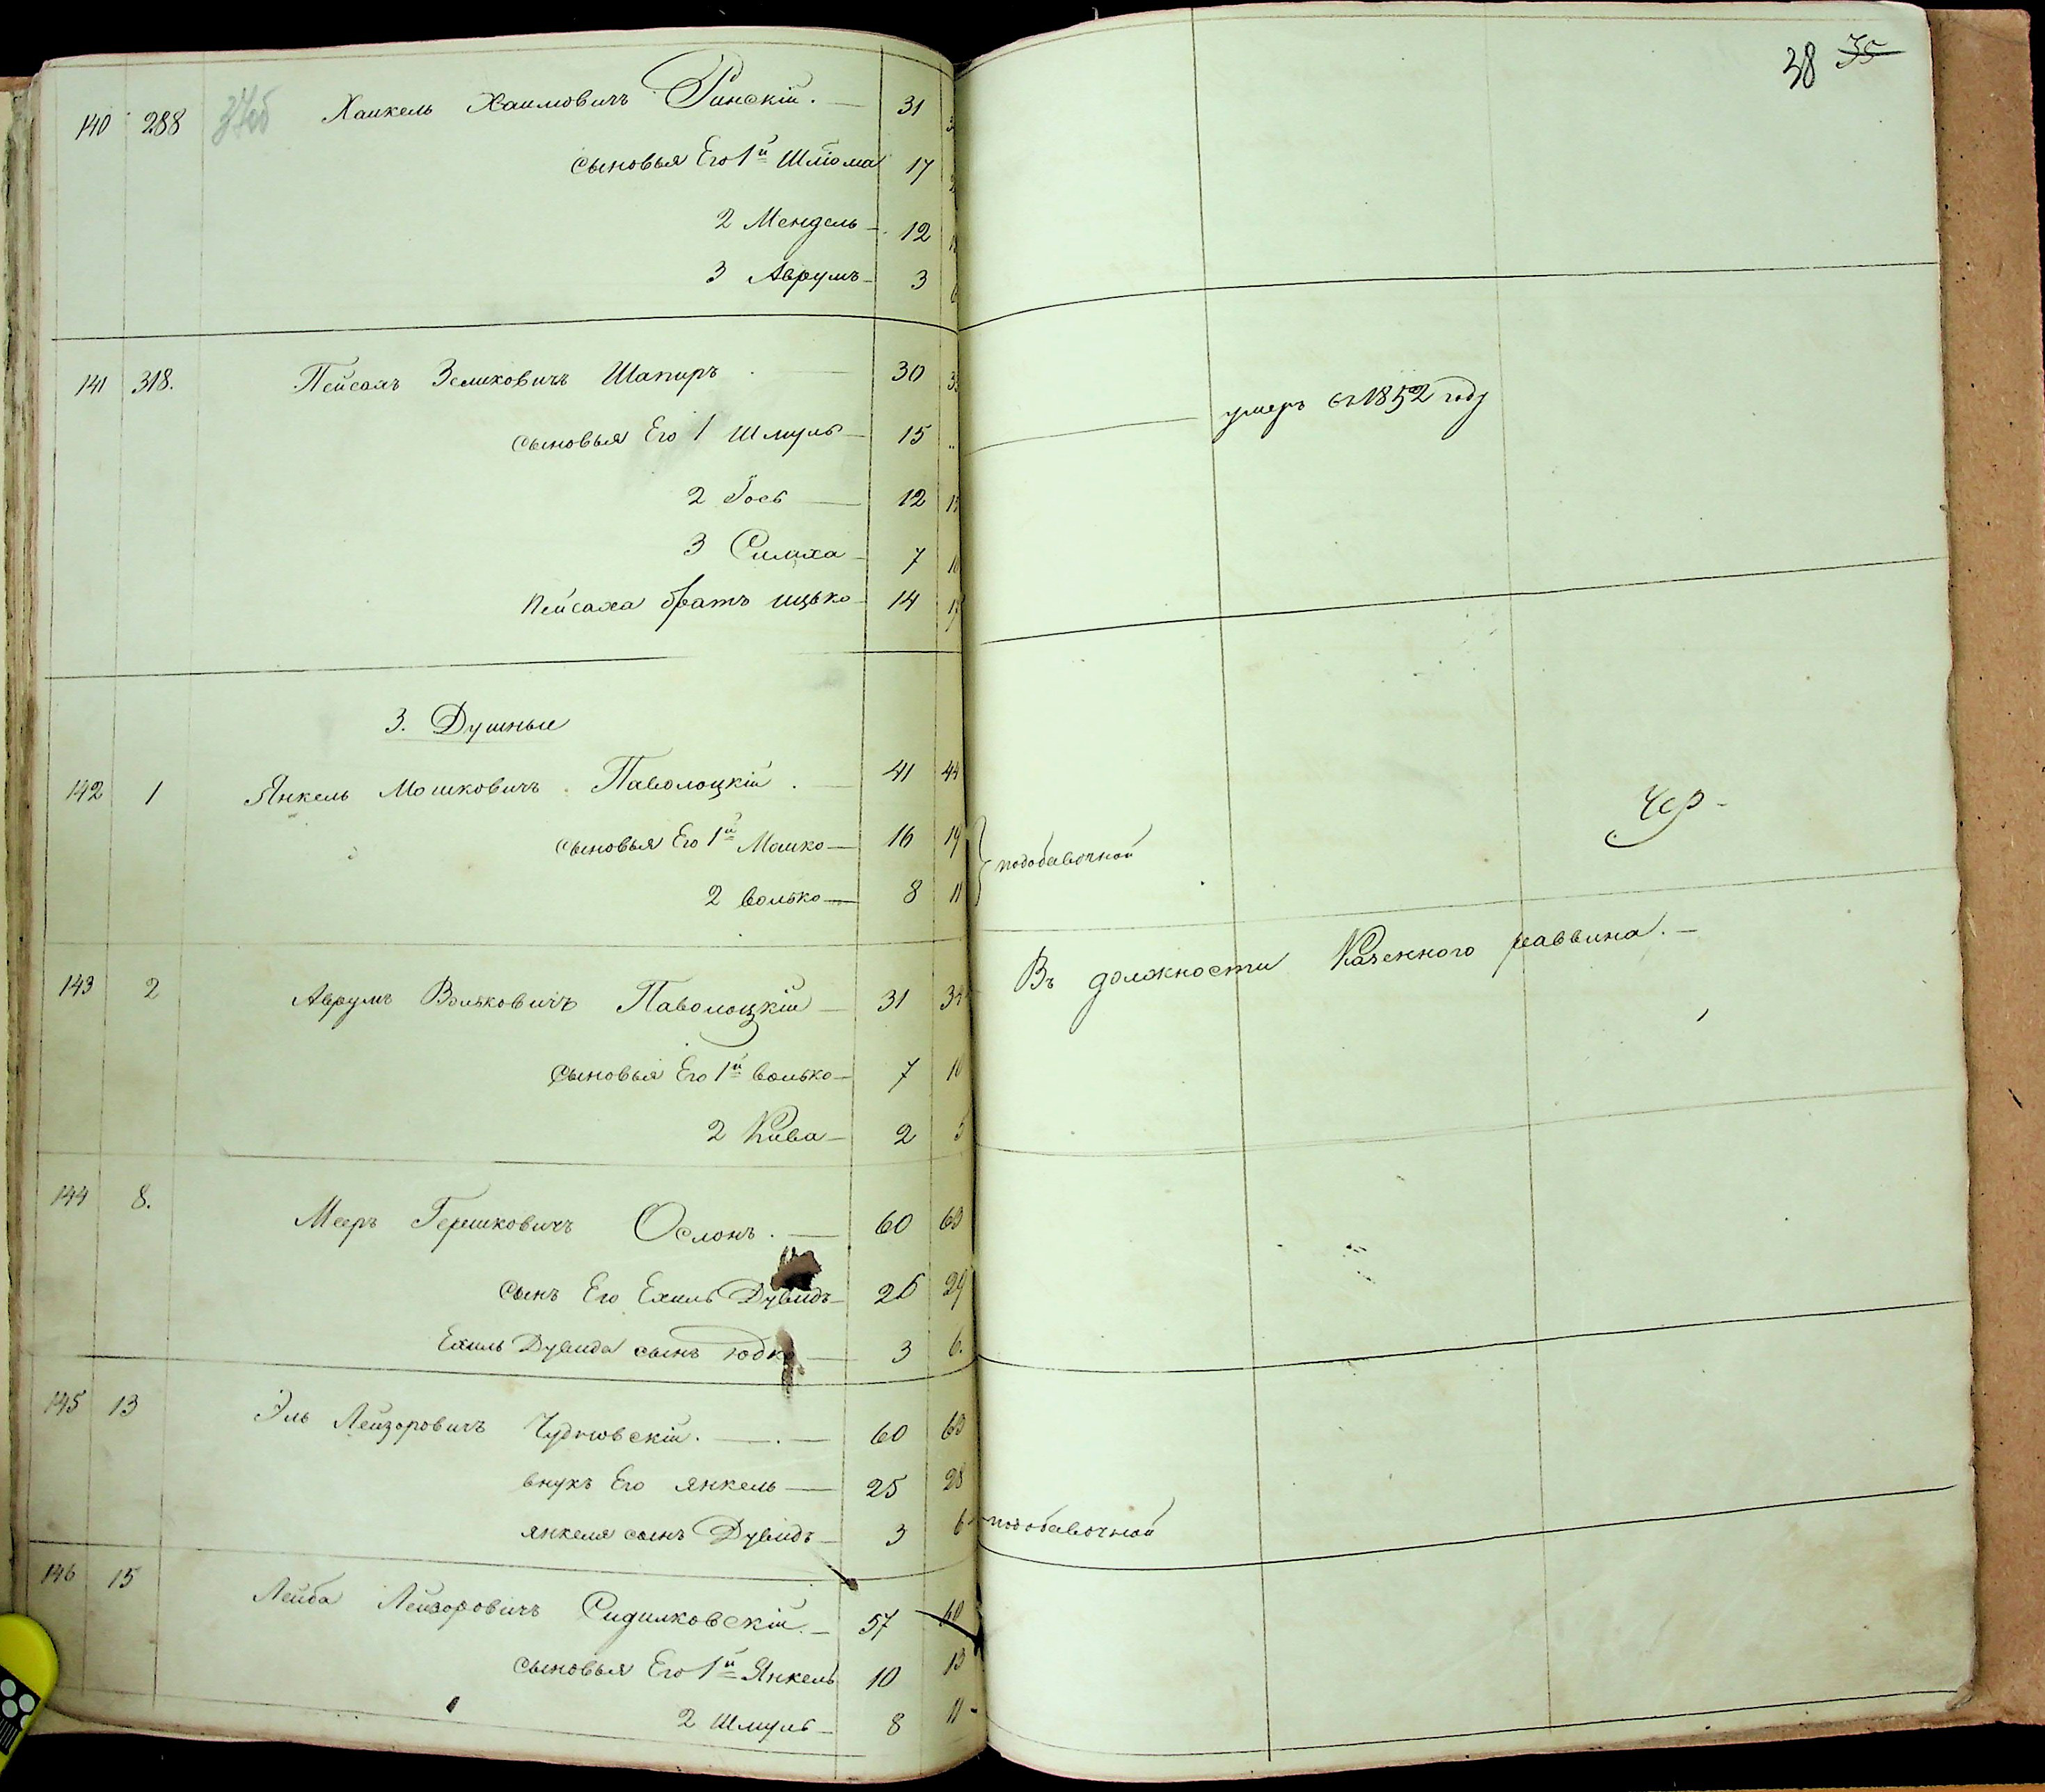 38 39
140 288 37об Хаикель Хаимовичъ Ринскій. — 31
сыновья Его 1й Шліома 17
2 Мендель — 12
3 Аврумъ — 3
141 318. Пейсахъ Зелиховичъ Шапиръ — 30
сыновья Его 1 Шмуль — 15 умеръ въ 1852 году
2 Іось — 12
3 Симха — 7
Пейсаха братъ ицько 14
3. Душныи
142 1 Янкель Мошковичъ Паволоцкій. — 41 44
сыновья Его 1й Мошко — 16 19 подобавочной
2 волько — 8 11
143 2 Аврумъ Вольковичъ Паволоцкій — 31 34 Въ должности Казенного раввина. —
сыновья Его 1й волько — 7 10
2 Кива — 2 5
144 8. Мееръ Гершковичъ Ослонъ. — 60 63
сынъ Его Ехиль Дувидъ — 26 29
Ехиль Дувида сынъ юдко — 3 6.
145 13 Эль Лейзоровичъ Чудновскій. — 60 63
внукъ Его янкель — 25 28
янкеля сынъ Дувидъ — 3 6 подобавочной
146 15 Лейба Лейзоровичъ Сидилковскій. — 57 60
сыновья Его 1й Янкель 10 13
2 Шмуль — 8 11